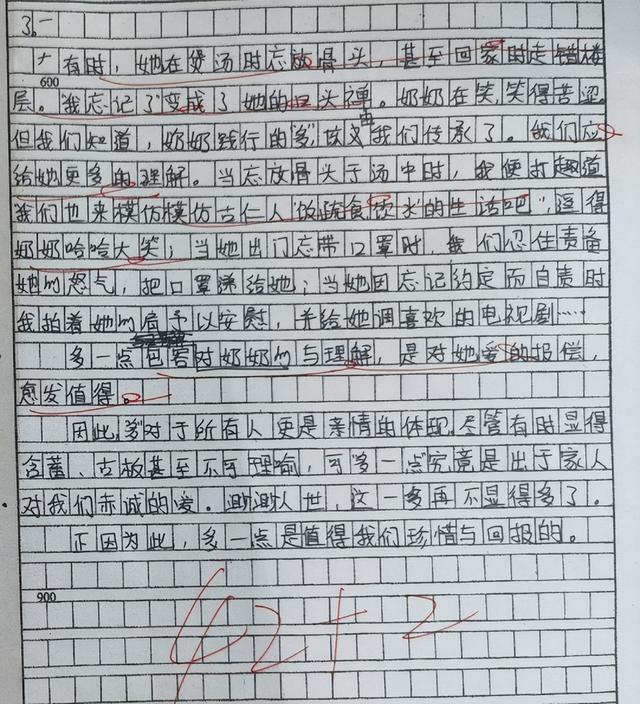 36-
有时，她在煲汤时忘放骨头，甚至回家时走错楼
600
层。"我忘记了"变成了她的口头禅。奶奶在笑，笑得苦涩。
但我们知道，奶奶践行的"多"该由我们传承了。我们应
给她更多的理解。当忘放骨头于汤中时，我便打趣道
"我们也来模仿模仿古仁人'饭蔬食饮水'的生活吧"，逗得
奶奶哈哈大笑；当她出门忘带口罩时，我们忍住责备
她的怒气，把口罩递给她；当她因忘记约定而自责时
我拍着她的肩予以安慰，并给她调喜欢的电视剧……
多一点包容对奶奶的与理解，是对她爱的报偿，
愈发值得。
因此，"多"对于所有人更是亲情的体现。尽管有时显得
含蓄、古板甚至不可理喻，可"多一点"究竟是出于家人
对我们赤诚的爱。人世，这一多再不显得多了。
正因为此，多一点是值得我们珍惜与回报的。
900
42+2